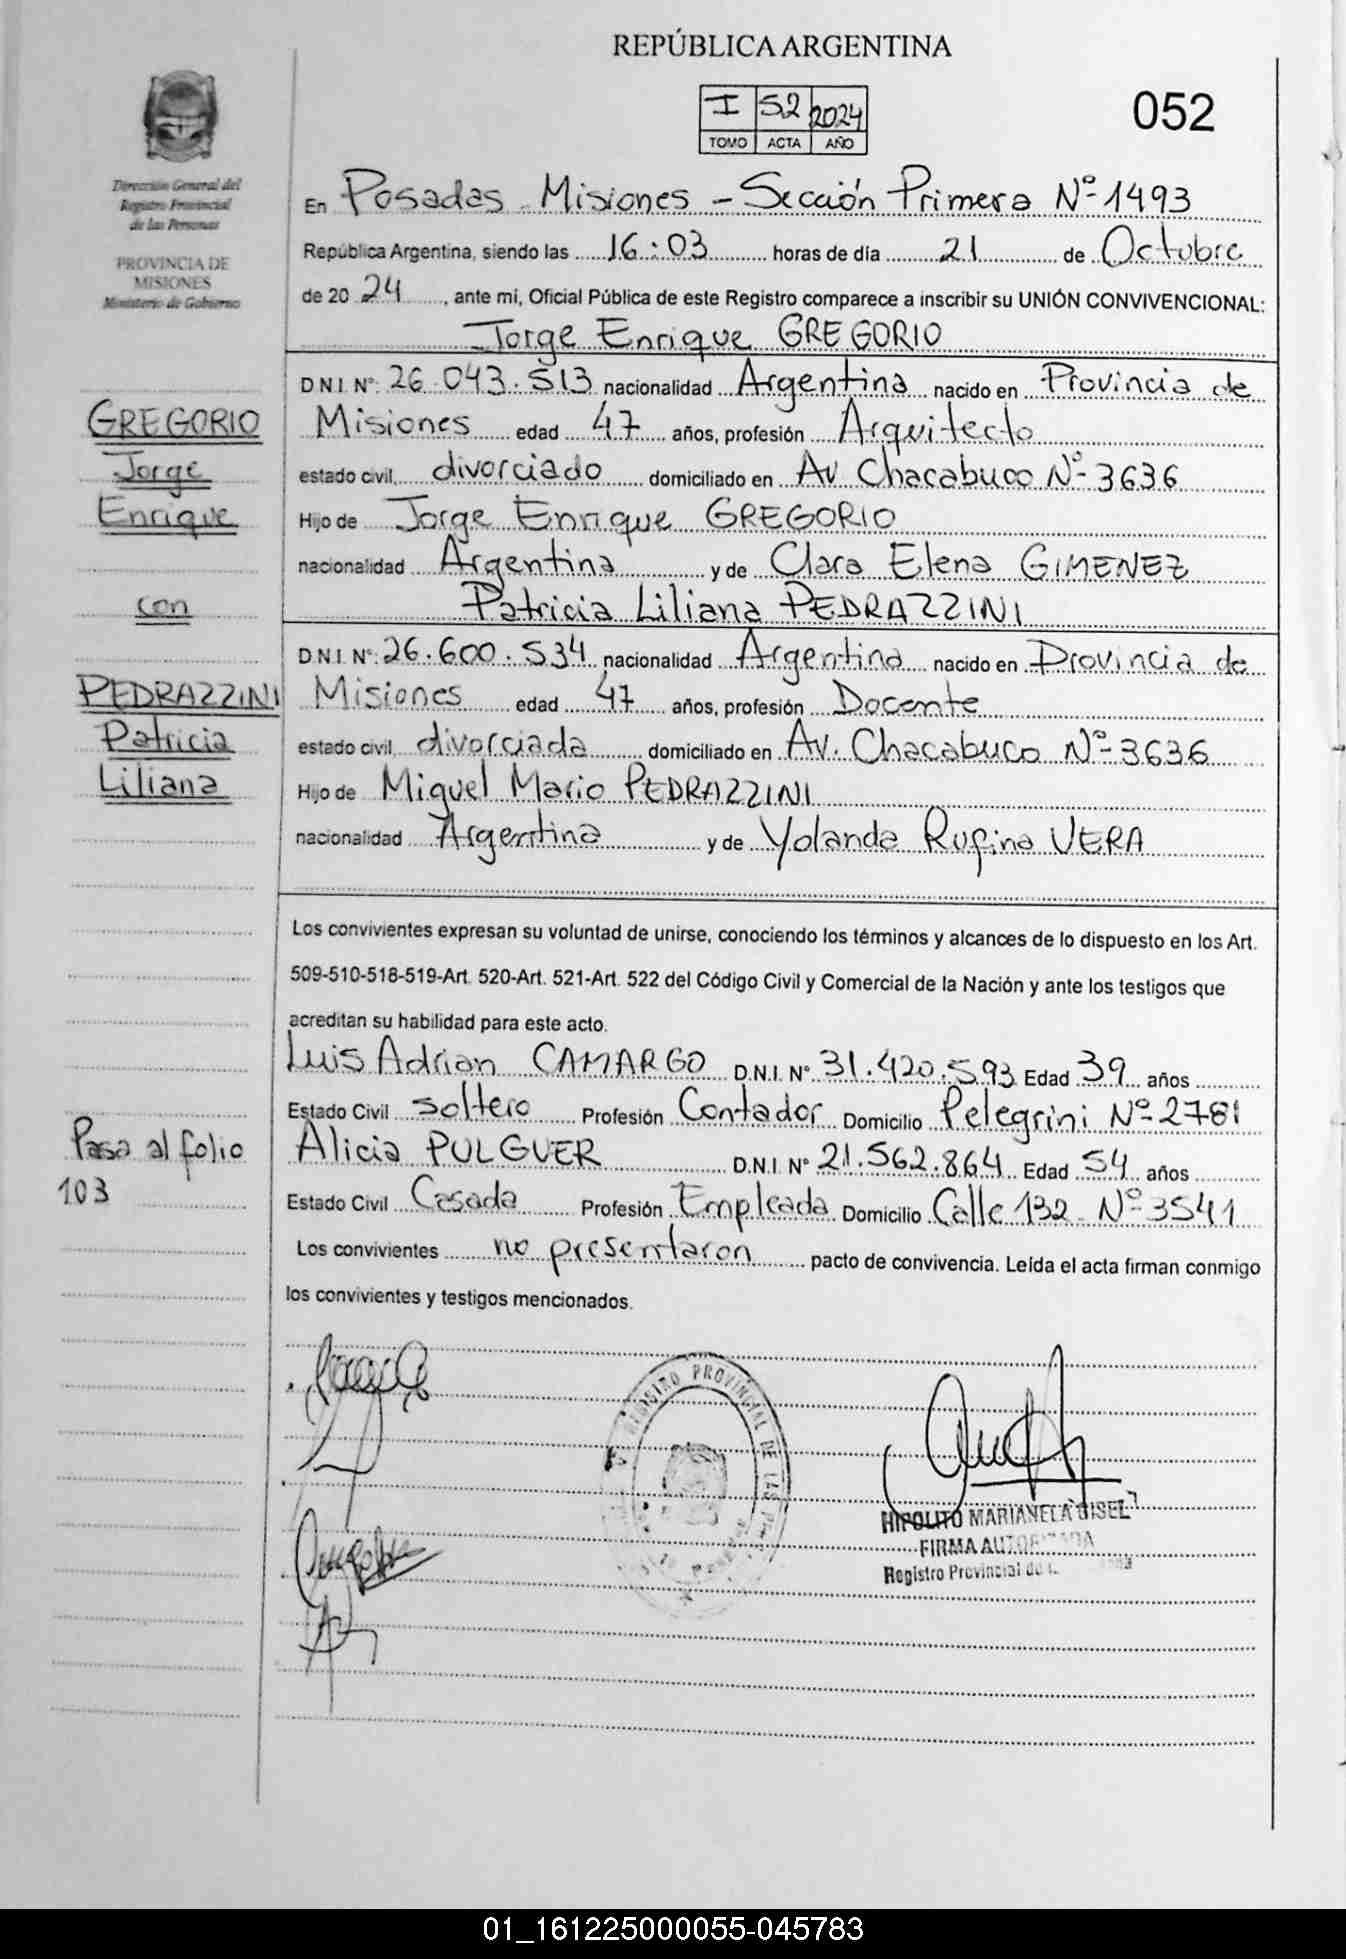 REPÚBLICA ARGENTINA
I 52 2024
TOMO ACTA AÑO
052
Dirección General del
Registro Provincial
de las Personas
PROVINCIA DE
MISIONES
Ministerio de Gobierno
En Posadas Misiones - Sección Primera Nº 1493
República Argentina, siendo las 16:03 horas de día 21 de Octubre
de 20 24, ante mi, Oficial Pública de este Registro comparece a inscribir su UNIÓN CONVIVENCIONAL:
Jorge Enrique GREGORIO
D.N.I. Nº: 26.043.513 nacionalidad Argentina nacido en Provincia de
Misiones edad 47 años, profesión Arquitecto
estado civil, divorciado domiciliado en Av Chacabuco Nº 3636
Hijo de Jorge Enrique GREGORIO
nacionalidad Argentina y de Clara Elena GIMENEZ
Patricia Liliana PEDRAZZINI
D.N.I. Nº: 26.600.534 nacionalidad Argentina nacido en Provincia de
Misiones edad 47 años, profesión Docente
estado civil, divorciada domiciliado en Av. Chacabuco Nº 3636
Hijo de Miguel Mario PEDRAZZINI
nacionalidad Argentina y de Yolanda Rufina VERA
GREGORIO
Jorge
Enrique
con
PEDRAZZINI
Patricia
Liliana
Los convivientes expresan su voluntad de unirse, conociendo los términos y alcances de lo dispuesto en los Art.
509-510-518-519-Art. 520-Art. 521-Art. 522 del Código Civil y Comercial de la Nación y ante los testigos que
acreditan su habilidad para este acto.
Luis Adrian CAMARGO D.N.I. Nº 31.420.593 Edad 39 años
Estado Civil soltero Profesión Contador Domicilio Pelegrini Nº 2781
Alicia PULGUER D.N.I. Nº 21.562.864 Edad 54 años
Estado Civil Casada Profesión Empleada Domicilio Calle 132 Nº 3541
Los convivientes no presentaron pacto de convivencia. Leída el acta firman conmigo
los convivientes y testigos mencionados.
Pasa al folio
103
REGISTRO PROVINCIAL DE LAS
HIPOLITO MARIANELA GISEL
FIRMA AUTORIZADA
Registro Provincial de
01_161225000055-045783